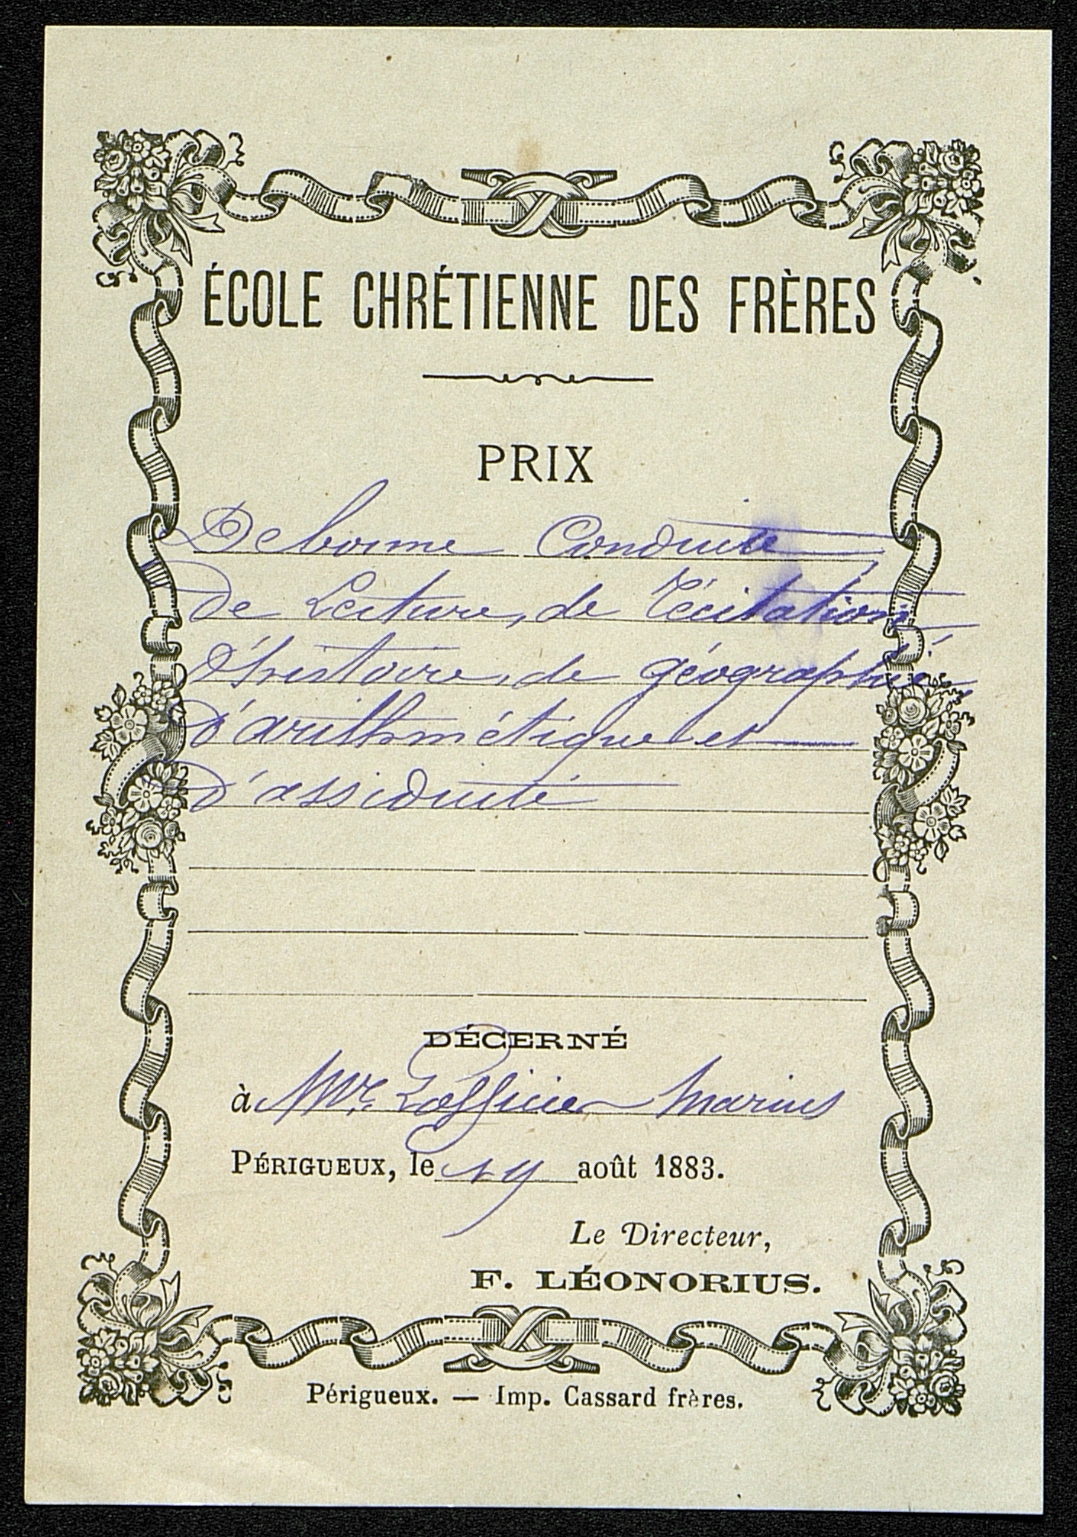 ÉCOLE CHRÉTIENNE DES FRÈRES
PRIX
De bonne Conduite
De Lecture, de Récitation
D'histoire, de géographie,
D'arithmétique et
D'assiduité
DÉCERNÉ
à Mr. Marius
PÉRIGUEUX, le 19 août 1883.
Le Directeur,
F. LÉONORIUS.
Périgueux. — Imp. Cassard frères.